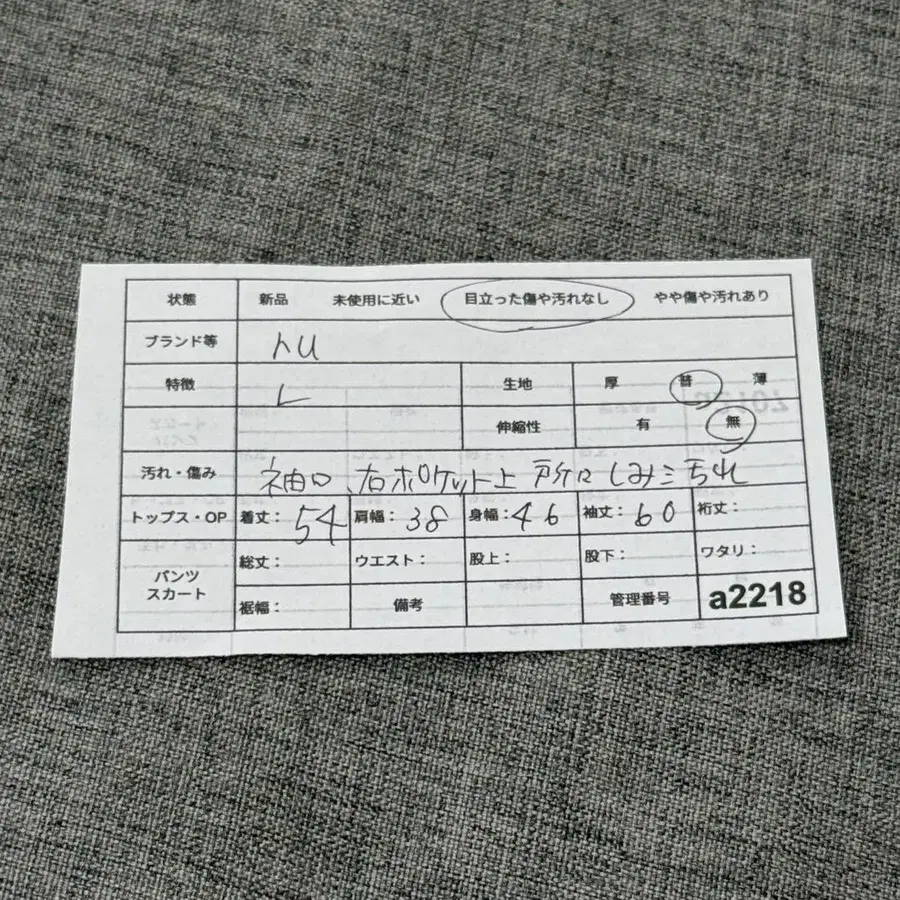 状態 新品 未使用に近い 目立った傷や汚れなし やや傷や汚れあり
ブランド等
特徴 L 生地 厚 普 薄
伸縮性 有 無
汚れ・傷み 袖口、右ポケット上
トップス・OP 着丈：54 肩幅：38 身幅：46 袖丈：60 裄丈：
パンツ スカート 総丈： ウエスト： 股上： 股下： ワタリ：
裾幅： 備考 管理番号 a2218